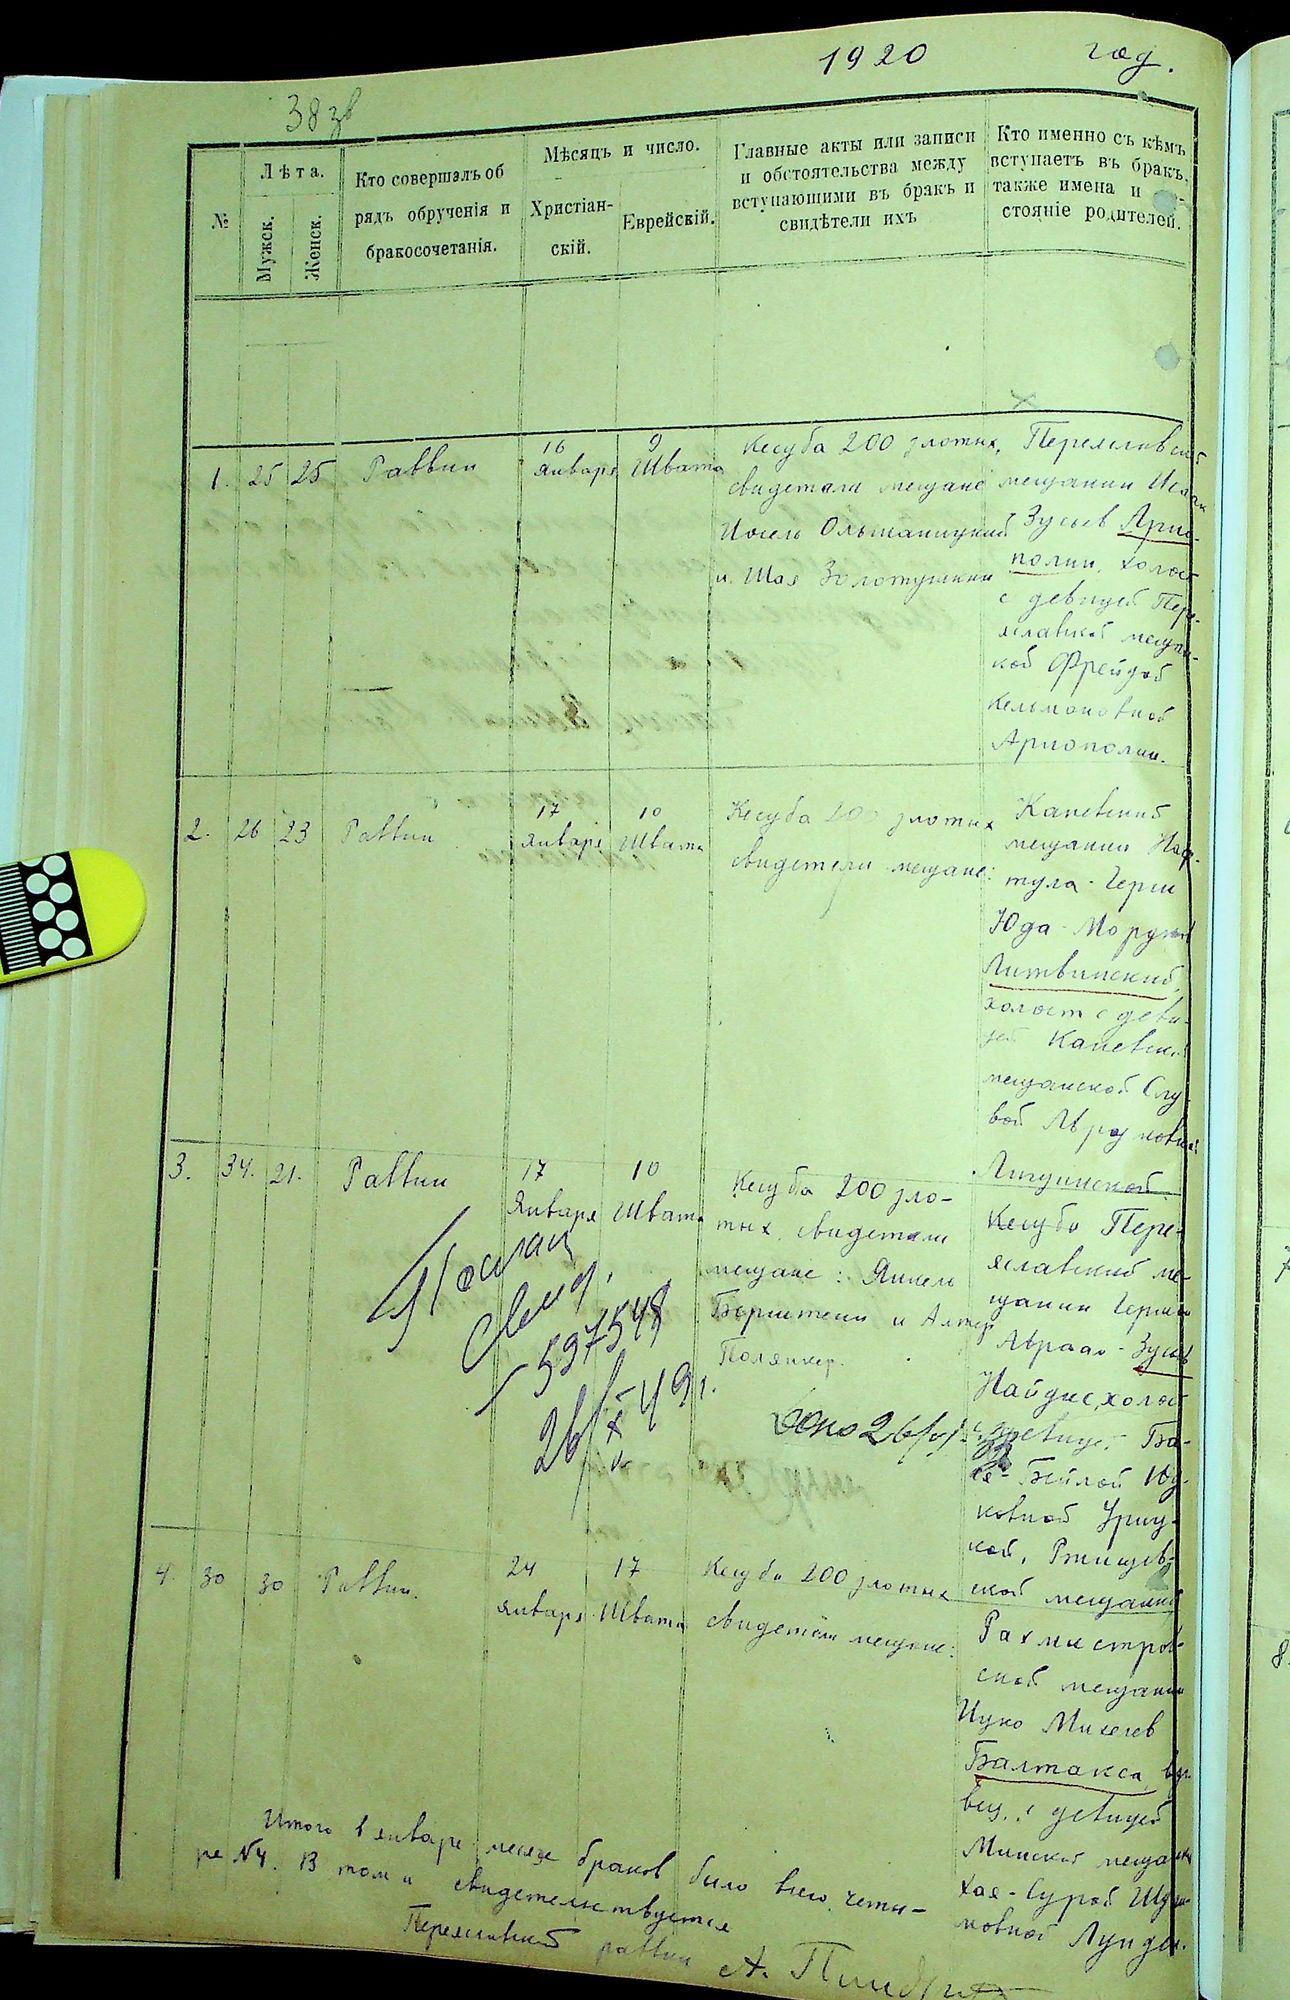 1920 год.
38 зв
№
Лѣта.
Мужск.
Женск.
Кто совершалъ об
рядъ обрученія и
бракосочетанія.
Мѣсяцъ и число.
Христіан-
скій.
Еврейскій.
Главные акты или записи
и обстоятельства между
вступающими въ бракъ и
свидѣтели ихъ
Кто именно съ кѣмъ
вступаетъ въ бракъ,
также имена и
стояніе родителей.
1. 25 25 Раввин
16
января
9
Швата
Кесуба 200 злотых,
свидетели мещане
Иосель Ольшаницкий
и Шая Золотушкин
Переяславский
мещанин Исаак
Зусьев Арио-
полин, холост
с девицей Пере-
яславской мещан-
кой Фрейдой
Кельмановной
Ариополин.
2. 26 23 Раввин
17
января
10
Швата
Кесуба 200 злотых
свидетели мещане:
Каневский
мещанин Наф-
тула-Герш
Юда-
Литвинский,
холост с деви-
цей Каневской
мещанской
вой Аврумовной
3. 34. 21. Раввин
17
Января
10
Швата
Кесуба 200 зло-
тых, свидетели
мещане: Янкель
Берштейн и Алтер
Полянкер.
Послан
свид.
597548
26/X 49 г.
Кесуба Пере-
яславский ме-
щанин Герш
Авраам-Зусев
Найдис, холост
с девицей Ба-
ся-Бейлой
ковной Уриц-
кой, Ржищев-
ской мещанкой
4. 30 30 Раввин.
24
января
17
Швата
Кесуба 200 злотых
свидетели мещане:
Рахмистров-
ский мещанин
Ицко Михелев
Балтакса,
с девицей
Минской мещанкой
Хая-Сурой
мовной
Итого в январе месяце браков было всего четы-
ре №4. В том и свидетельствуется
Переяславский раввин А.